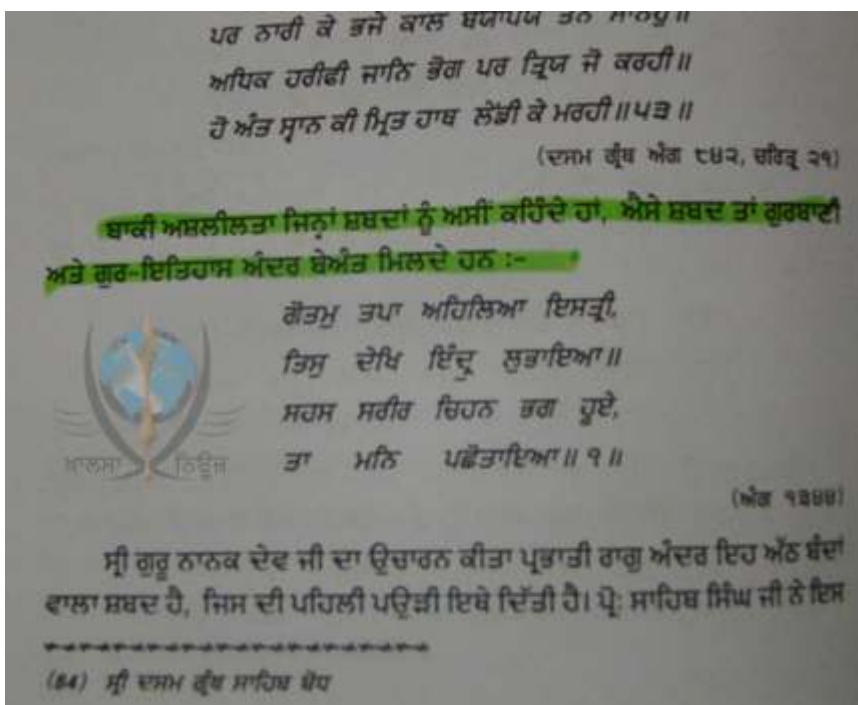 ਪਰ ਨਾਰੀ ਕੇ ਭਜੇ ਕਾਲ ਬਯਾਪਯ ਤਨ
ਅਧਿਕ ਹਰੀਫੀ ਜਾਨਿ ਭੋਗ ਪਰ ਤ੍ਰਿਯ ਜੋ ਕਰਹੀ॥
ਹੋ ਅੰਤ ਸ੍ਵਾਨ ਕੀ ਮ੍ਰਿਤ ਹਾਥ ਲੇਂਡੀ ਕੇ ਮਰਹੀ॥੫੩॥
(ਦਸਮ ਗ੍ਰੰਥ ਅੰਗ ੮੪੨, ਚਰਿਤ੍ਰ ੨੧)
ਬਾਕੀ ਅਸ਼ਲੀਲਤਾ ਜਿਨ੍ਹਾਂ ਸ਼ਬਦਾਂ ਨੂੰ ਅਸੀਂ ਕਹਿੰਦੇ ਹਾਂ, ਐਸੇ ਸ਼ਬਦ ਤਾਂ ਗੁਰਬਾਣੀ
ਅਤੇ ਗੁਰ-ਇਤਿਹਾਸ ਅੰਦਰ ਬੇਅੰਤ ਮਿਲਦੇ ਹਨ :-
ਗੋਤਮੁ ਤਪਾ ਅਹਿਲਿਆ ਇਸਤ੍ਰੀ,
ਤਿਸੁ ਦੇਖਿ ਇੰਦ੍ਰੁ ਲੁਭਾਇਆ॥
ਸਹਸ ਸਰੀਰ ਚਿਹਨ ਭਗ ਹੂਏ,
ਤਾ ਮਨਿ ਪਛੋਤਾਇਆ॥੧॥
ਖਾਲਸਾ ਨਿਊਜ਼
(ਅੰਗ ੧੩੪੪)
ਸ੍ਰੀ ਗੁਰੂ ਨਾਨਕ ਦੇਵ ਜੀ ਦਾ ਉਚਾਰਨ ਕੀਤਾ ਪ੍ਰਭਾਤੀ ਰਾਗੁ ਅੰਦਰ ਇਹ ਅੱਠ ਬੰਦਾਂ
ਵਾਲਾ ਸ਼ਬਦ ਹੈ, ਜਿਸ ਦੀ ਪਹਿਲੀ ਪਉੜੀ ਇਥੇ ਦਿੱਤੀ ਹੈ। ਪ੍ਰੋ: ਸਾਹਿਬ ਸਿੰਘ ਜੀ ਨੇ ਇਸ
(54) ਸ੍ਰੀ ਦਸਮ ਗ੍ਰੰਥ ਸਾਹਿਬ ਬੋਧ